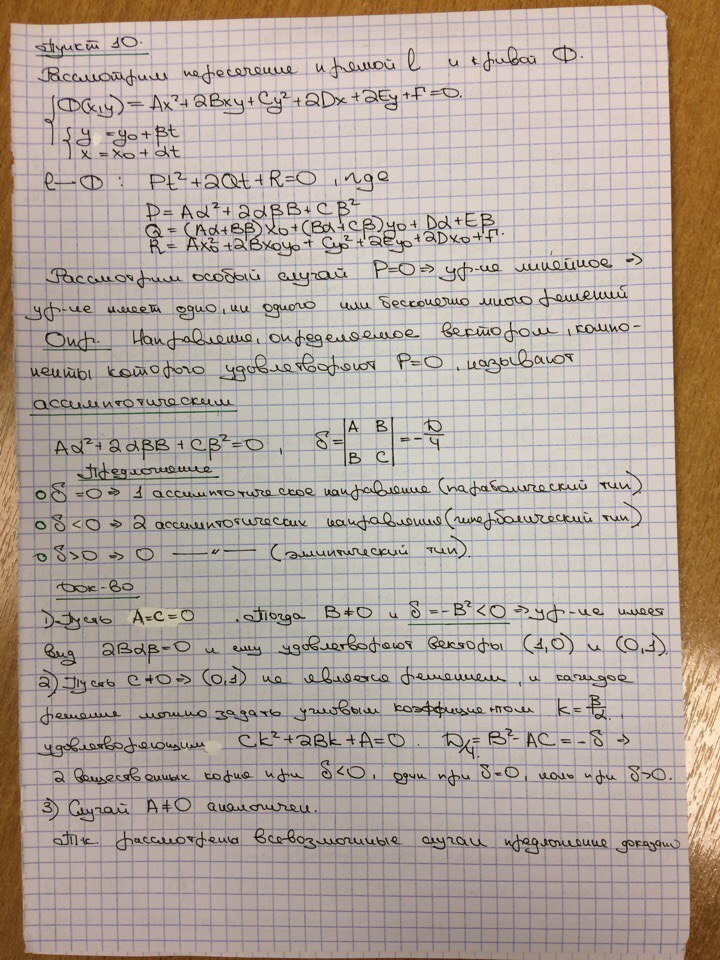 Пункт 10.
Рассмотрим пересечение прямой l и кривой Ф.
Ф(x,y) = Ax²+2Bxy+Cy²+2Dx+2Ey+F=0.
y = y₀+βt
x = x₀+αt
l—Ф : Pt²+2Qt+R=0, где
P = Aα²+2αβB+Cβ²
Q = (Aα+Bβ)x₀+(Bα+Cβ)y₀+Dα+Eβ
R = Ax₀²+2Bx₀y₀+Cy²+2Ey₀+2Dx₀+F.
Рассмотрим особый случай P=0 ⇒ ур-ие линейное ⇒
ур-ие имеет одно, ни одного или бесконечно много решений
Опр. Направление, определяемое вектором, компо-
ненты которого удовлетворяют P=0, называют
ассимптотическим
Aα²+2αβB+Cβ²=0, δ=|A B; B C|=-D/4
Предложение
δ=0 ⇒ 1 ассимптотическое направление (параболический тип)
δ<0 ⇒ 2 ассимптотических направления (гиперболический тип)
δ>0 ⇒ 0 —"— (элиптический тип).
Док-во
1) Пусть A=C=0. Тогда B≠0 и δ=-B²<0 ⇒ ур-ие имеет
вид 2Bαβ=0 и ему удовлетворяют векторы (1,0) и (0,1).
2) Пусть C≠0 ⇒ (0,1) не является решением, и каждое
решение можно задать угловым коэффициентом k=β/α,
удовлетворяющим Ck²+2Bk+A=0. D/4=B²-AC=-δ ⇒
2 вещественных корня при δ<0, один при δ=0, ноль при δ>0.
3) Случай A≠0 аналогичен.
Т.к. рассмотрены всевозможные случаи предложение доказано